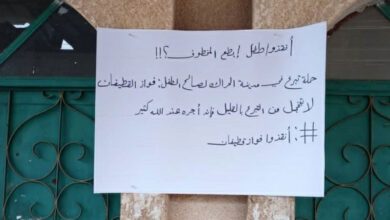 أنقذوا طفل إبطع المخطوف؟!!
حملة تبرع في مدينة الحراك لصالح الطفل: فواز القطيفان
لا تخجل من التبرع بالقليل فإن أجره عند الله كثير
#: أنقذوا فواز قطيفان